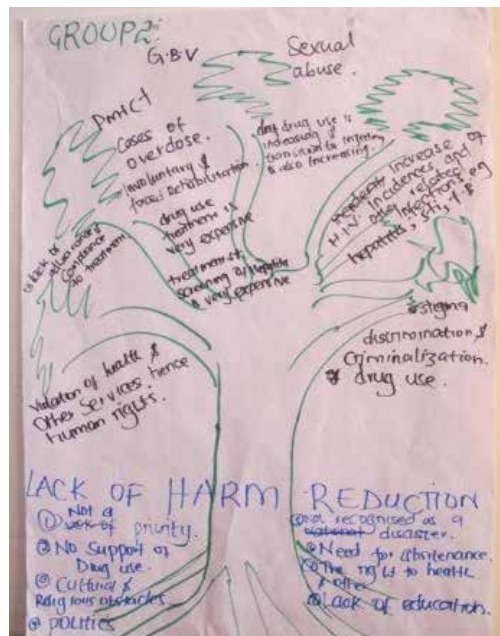 GROUP 2:
G.B.V
Sexual
abuse.
PMTCT
Cases of
overdose.
Involuntary &
forced Rehabilitation.
drug use
treatment is
very expensive
treatment,
screening of Hepatitis
is very expensive
drug use is
increasing &
transition to injecting
is also increasing.
increase
H.I.V. Incidences and
other related
Infections e.g
hepatitis, STI, T.B
Lack of
Compliance
to treatment
Stigma
discrimination &
Criminalization.
drug use.
Violation of health &
Other Services hence
human rights.
LACK OF HARM REDUCTION
① Not a
priority.
② No Support on
Drug use.
③ Cultural &
Religious obstacles
④ POLITICS
Not recognised as a
national disaster.
Need for abstinence.
The right to health
& other
Lack of education.